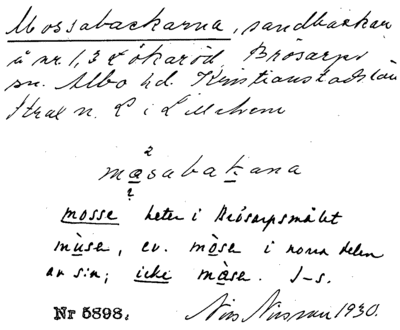 Mossabackarna, sandbackar
å nr 1, 3 Lökaröd, Brösarps
sn. Albo hd. Kristianstads län
Strax n. L i L Malvem
2
ma̲sabak̲ana
?
mosse heter i Brösarpsmålet
mùse, ev. mòse i norra delen
av s:n; icke màse. I-s.
Nr 5898.
Nils Nilsson 1930.